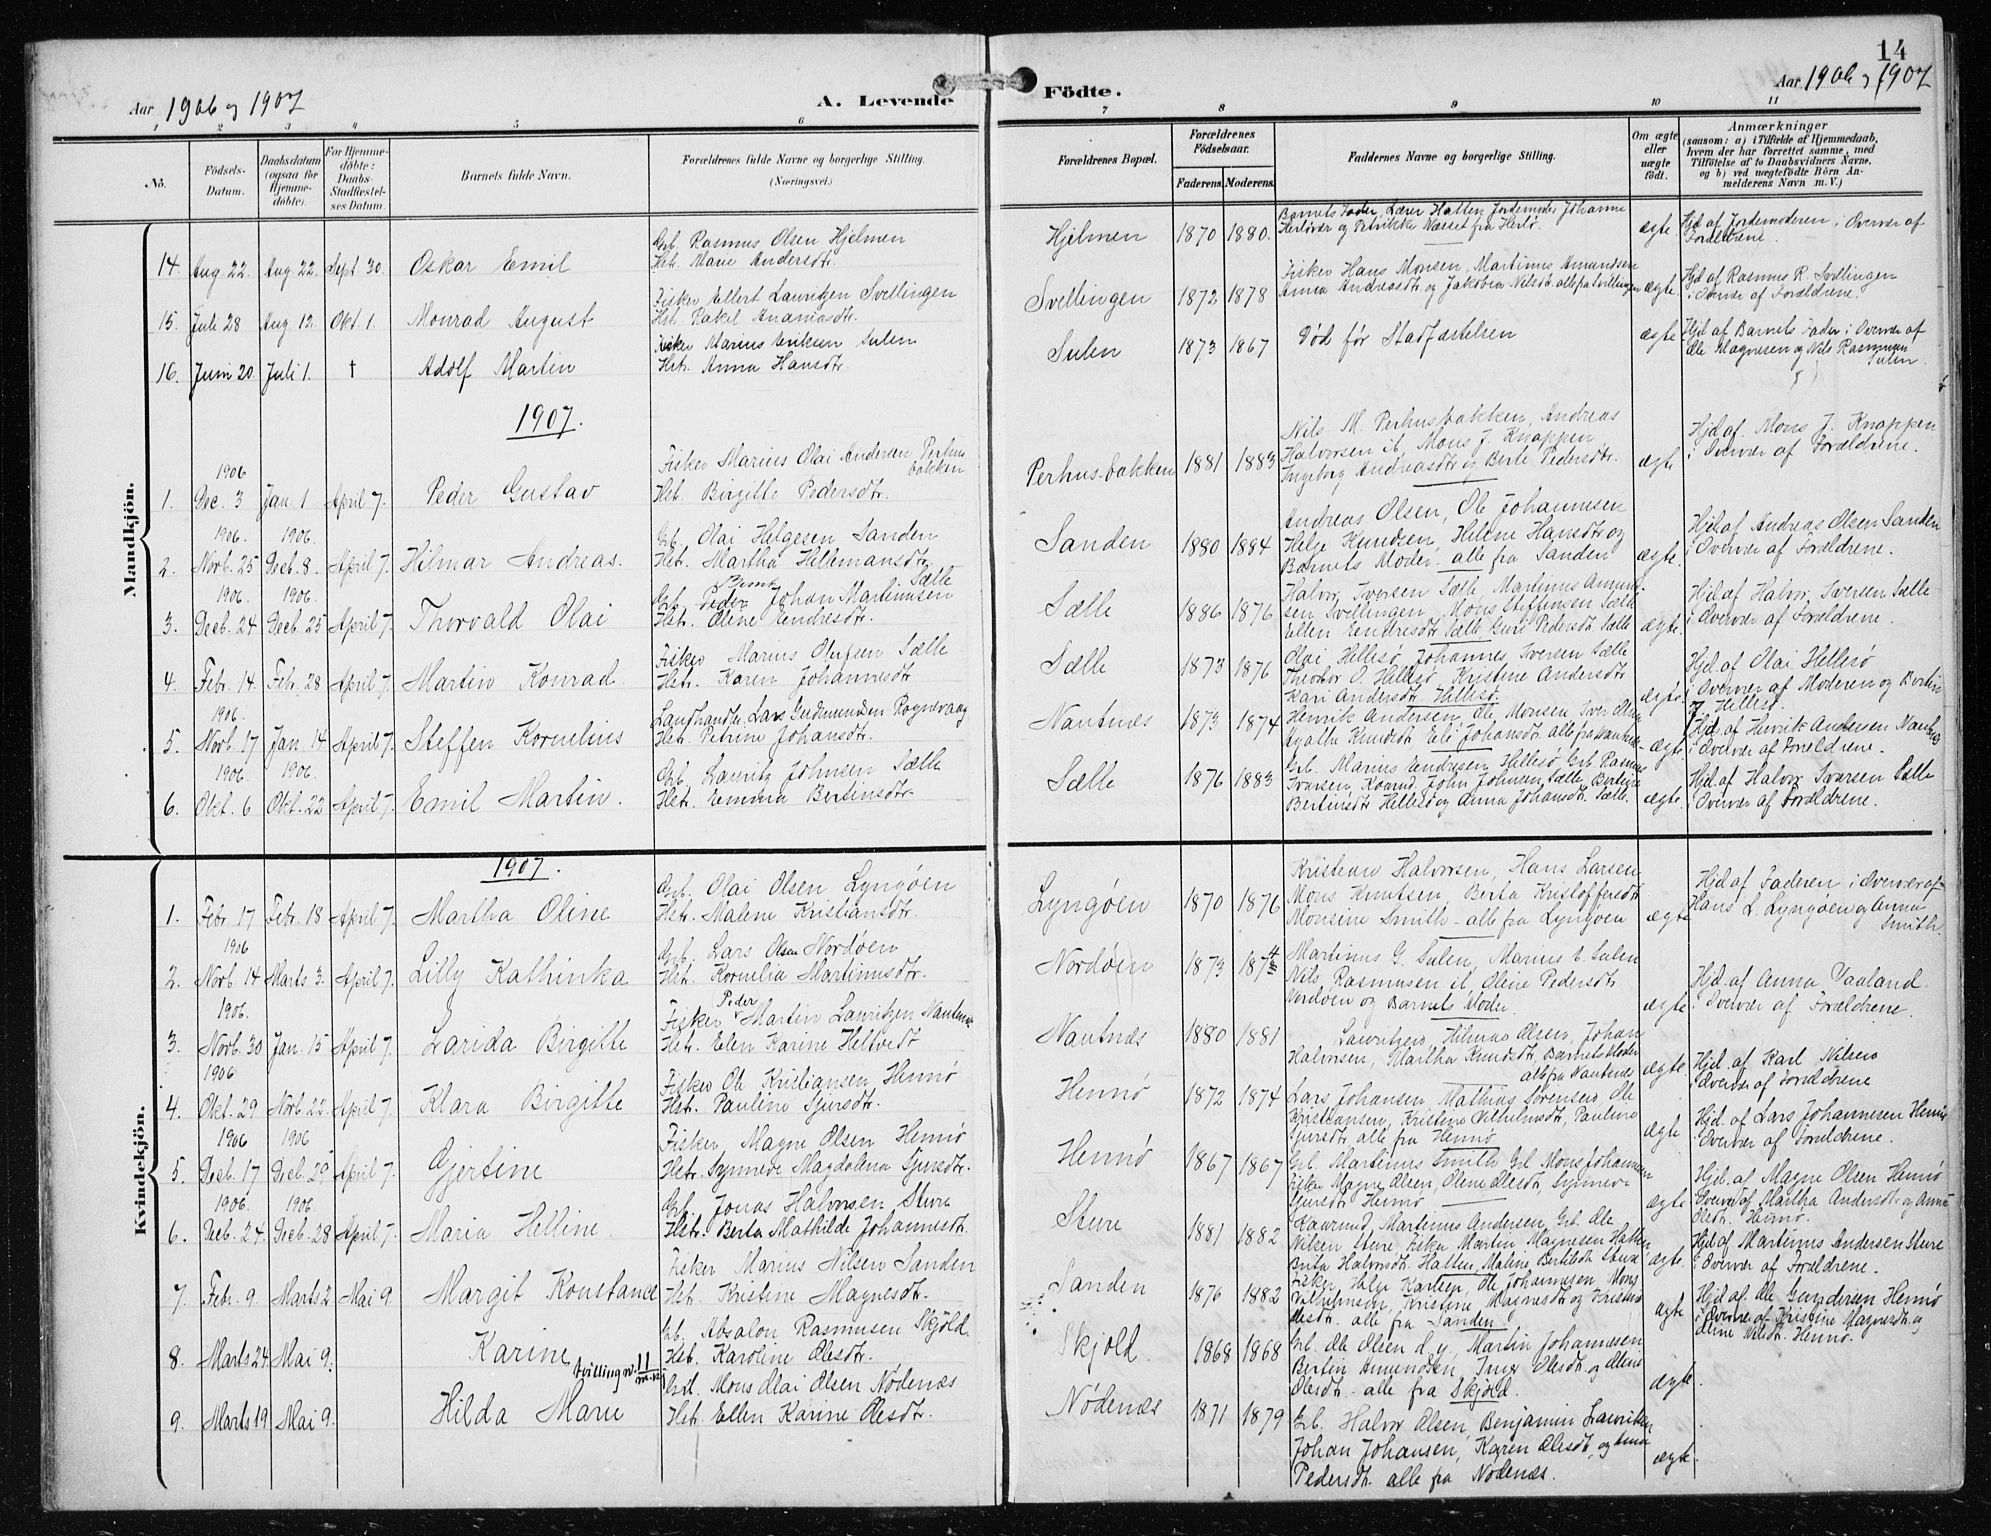 14
Aar 1906 og 1907
A. Levende Födte.
Aar 1906 og 1907
1 2 3 4 5 6 7 8 9 10 11
No.
Födsels-Datum.
Daabsdatum (ogsaa for Hjemme-döbte).
For Hjemme-döbte: Daabs-Stadfæstel-ses Datum.
Barnets fulde Navn.
Forældrenes fulde Navne og borgerlige Stilling. (Næringsvei.)
Forældrenes Bopæl.
Forældrenes Födselsaar.
Faderens. Moderens.
Faddernes Navne og borgerlige Stilling.
Om ægte eller uægte födt.
Anmærkninger
(saasom: a) i Tilfælde af Hjemmedaab, hvem der har forrettet samme, med Tilföielse af to Daabsvidners Navne, og b) ved uægtefödte Börn An-melderens Navn m. V.)
Mandkjön.
14. Aug 22. Aug 22. Sept 30. Oskar Emil
Grb. Rasmus Olsen Hjelmen
Hst. Marie Andersdtr.
Hjelmen 1870 1880.
Barnets Fader, Lærer Hatten, Jordemoder Johanne
Herlövær og Petrikke Næsset fra Herlö.
ægte.
Hjd af Jordemoderen i Overvær af
Forældrene.
15. Juli 28 Aug 12. Okt 1. Monrad August
Fisker Ellert Lauritzen Svellingen
Hst. Rakel Ananiasdtr.
Svellingen 1872 1878
Fisker Hans Monsen, Martinus Amundsen
Anna Andreasdtr og Jakobea Nilsdtr. alle fra Svellingen
ægte.
Hjd af Rasmus R. Svellingen
i Overvær af Forældrene.
16. Juni 20. Juli 1. † Adolf Martin
Fisker Marius Eriksen Sulen
Hst. Anna Hansdtr
Sulen 1873 1867
Død før Stadfæstelsen
ægte.
Hjd af Barnets Fader i Overvær af
Ole Magnesen og Nils Rasmussen
Sulen.
1907.
1906
1. Dec. 3 Jan 1 April 7. Peder Gustav
Fisker Marius Olai Andersen Perhus
bakken
Hst. Birgitte Pedersdtr.
Perhusbakken 1881 1883
Nils M. Perhusbakken, Andreas
Halvorsen ib. Mons J. Knappen
Ingeborg Andreasdtr og Berte Pedersdtr.
ægte
Hjd af Mons J. Knappen
i Overvær af Forældrene.
1906. 1906.
2. Novb. 25 Decb. 8. April 7. Hilmar Andreas.
Grb. Olai Helgesen Sanden
Hst. Martha Hellemansdtr.
Sanden 1880 1884
Andreas Olsen, Ole Johannesen
Helge Knudsen, Helene Hansdtr og
Barnets Moder alle fra Sanden
ægte.
Hjd. af Andreas Olsen Sanden
i Overvær af Forældrene.
1906. 1906.
3. Decb. 24 Decb. 25 April 7. Thorvald Olai
Grb. Peder Johan Martinusen Sælle
Hst. Oline Endresdtr.
Sælle 1886 1876
Halvor Iversen Sælle, Martinus Amund-
sen Svellingen, Mons Steffensen Sælle
Ellen Endresdtr Sælle Guri Pedersdtr Sælle
ægte.
Hjd af Halvor Iversen Sælle
i Overvær af Forældrene.
4. Febr. 14. Febr. 28 April 7. Martin Konrad.
Fisker Marius Olufsen Sælle
Hst. Karen Johannesdtr
Sælle 1873 1876
Olai Hellesö Johannes Iversen Sælle
Theodor O. Hellesö, Kristine Andersdtr
Kari Andersdtr Hellesö.
ægte.
Hjd. af Olai Hellesö
i Overvær af Moderen og Bertin
J. Hellesö.
1906.
5. Novb. 17 Jan 14 April 7. Steffen Kornelius
Landhandler Lars Gudmundsen Rognevaag
Hst. Petrine Johansdtr.
Nautnæs 1873 1874
Henrik Andersen, Ole Monsen, Iver Olsen
Hyalle Knudsdtr. Eli Johansdtr. alle fra Nautnæs
ægte.
Hjd. af Henrik Andersen Nautnæs
i Overvær af Forældrene.
1906. 1906.
6. Okt. 6 Okt. 22 April 7. Emil Martin.
Grb. Lauritz Johnsen Sælle
Hst. Emma Bertinsdtr
Sælle 1876 1883
Grb. Marius Endresen Hellesö Grb Rasmus
Iversen, Konrad, John Johnsen Sælle, Bertine
Bertinsdtr Hellesö og Anna Johansdtr. Sælle.
ægte.
Hjd. af Halvor Iversen Sælle
i Overvær af Forældrene.
Kvindekjön.
1907.
1. Febr. 17 Febr. 18 April 7. Martha Oline
Grb. Olai Olsen Lyngöen
Hst. Malene Kristiansdtr.
Lyngöen 1870 1876
Kristian Halvorsen, Hans Larsen
Mons Knutsen, Berta Kristoffersdtr
Monsine Smith - alle fra Lyngöen
ægte
Hjd af Faderen i Overvær af
Hans L. Lyngöen og Anna
Smith.
1906
2. Novb. 14 Marts 3. April 7. Lilly Kathinka
Grb. Lars Olsen Nordöen
Hst. Kornelia Martinusdtr.
Nordöen 1873
Martinus G. Sulen, Marius E. Sulen
Nils Rasmusen ib, Oline Pedersdtr
Nordöen og Barnets Moder.
ægte
Hjd. af Anna Vaaland
i Overvær af Forældrene.
1906.
3. Novb. 30 Jan. 15 April 7. Larida Birgitte
Fisker Peder Martin Lauritzen Nautnæs
Hst. Elen Karine Heltvedt
Nautnæs 1880 1881
Lauritzen, Hilmar Olsen, Johan
Halvorsen, Martha Knudsdtr, Barnets Moder
alle fra Nautnæs
ægte.
Hjd. af Karl Nilsen
i Overvær af Forældrene
1906
4. Okt. 29 Novb. 25. April 7. Klara Birgitte
Fisker Ole Kristiansen Hennö
Hst. Pauline Sjursdtr.
Hennö 1872 1874
Lars Johansen Mathias Sörensen Ole
Kristiansen, Kristine Vilhelmsdtr, Pauline
Sjursdtr. alle fra Hennö
ægte
Hjd. af Lars Johannesen Hennö
i Overvær af Forældrene.
1906 1906
5. Decb. 17 Decb. 29 April 7. Gjertine
Fisker Magne Olsen Hennö
Hst. Synneve Magdalena Sjursdtr.
Hennö 1867 1867
Grb. Martinus Smith Grb Mons Johannesen
Fisker Magne Olsen, Oline Olesdtr, Synneve
Sjursdtr Hennö
ægte
Hjd. af Magne Olsen Hennö
i Overvær af Martha Andersdtr og Anna
Olesdtr. Hennö.
1906. 1906.
6. Decb. 24. Decb. 28 April 7. Maria Helline.
Grb. Jonas Halvorsen Sture
Hst. Berta Mathilde Johannesdtr.
Sture 1881 1882
Martinus Andersen, Grb. Ole
Nilsen Sture, Fisker Martin Magnesen Hatten
Berta Halvorsdtr. Hatten, Malene Bertilsdtr Sture
ægte.
Hjd af Martinus Andersen Sture
i Overvær af Forældrene.
7. Febr. 9. Marts 2 Mai 9. Margit Konstance
Fisker Marius Nilsen Sanden
Hst. Kristine Magnesdtr.
Sanden 1876 1882
Fisker Helge Karlsen, Ole Johannesen, Mons
Vilhelmsen, Kristine Magnesdtr og Kristine
Olesdtr. alle fra Sanden.
ægte
Hjd. af Ole Gundersen Hennö
i Overvær af Kristine Magnesdtr. og
Oline Nilsdtr. Hennö.
8. Marts 24. Mai 9. Karine
Grb. Absalon Rasmusen Skjöld.
Hst. Karoline Olesdtr.
Skjold. 1868 1868
Grb. Ole Olsen d.y., Martin Johannesen
Bertin Amundsen, Inger Olesdtr. og Oline
Olesdtr. - alle fra Skjöld.
ægte.
Tvilling n. 11
9. Marts 19 Mai 9. Hilda Marie
Grb. Mons Olai Olsen Nödenæs
Hst. Ellen Karine Olesdtr.
Nödenæs 1871 1879
Grb. Halvor Olsen, Benjamin Lauritzen
Johan Johansen, Karen Olesdtr, og Anna
Pedersdtr. alle fra Nödenæs.
ægte.